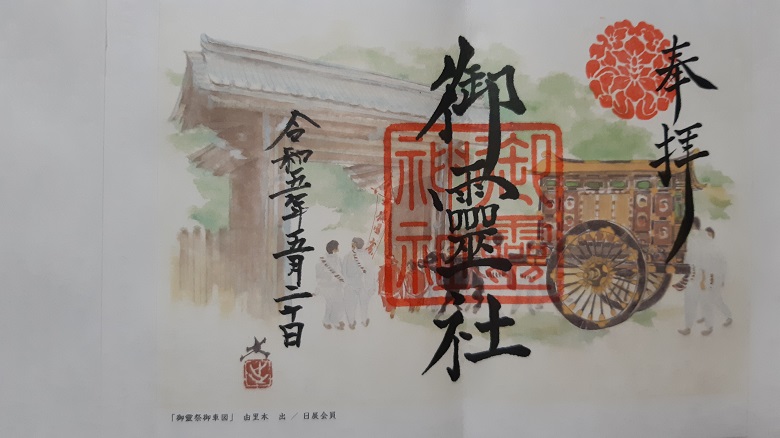 奉拝
御靈社
御靈
神社
令和五年五月二十日
「御靈祭御車図」 由里本 出 ／ 日展会員